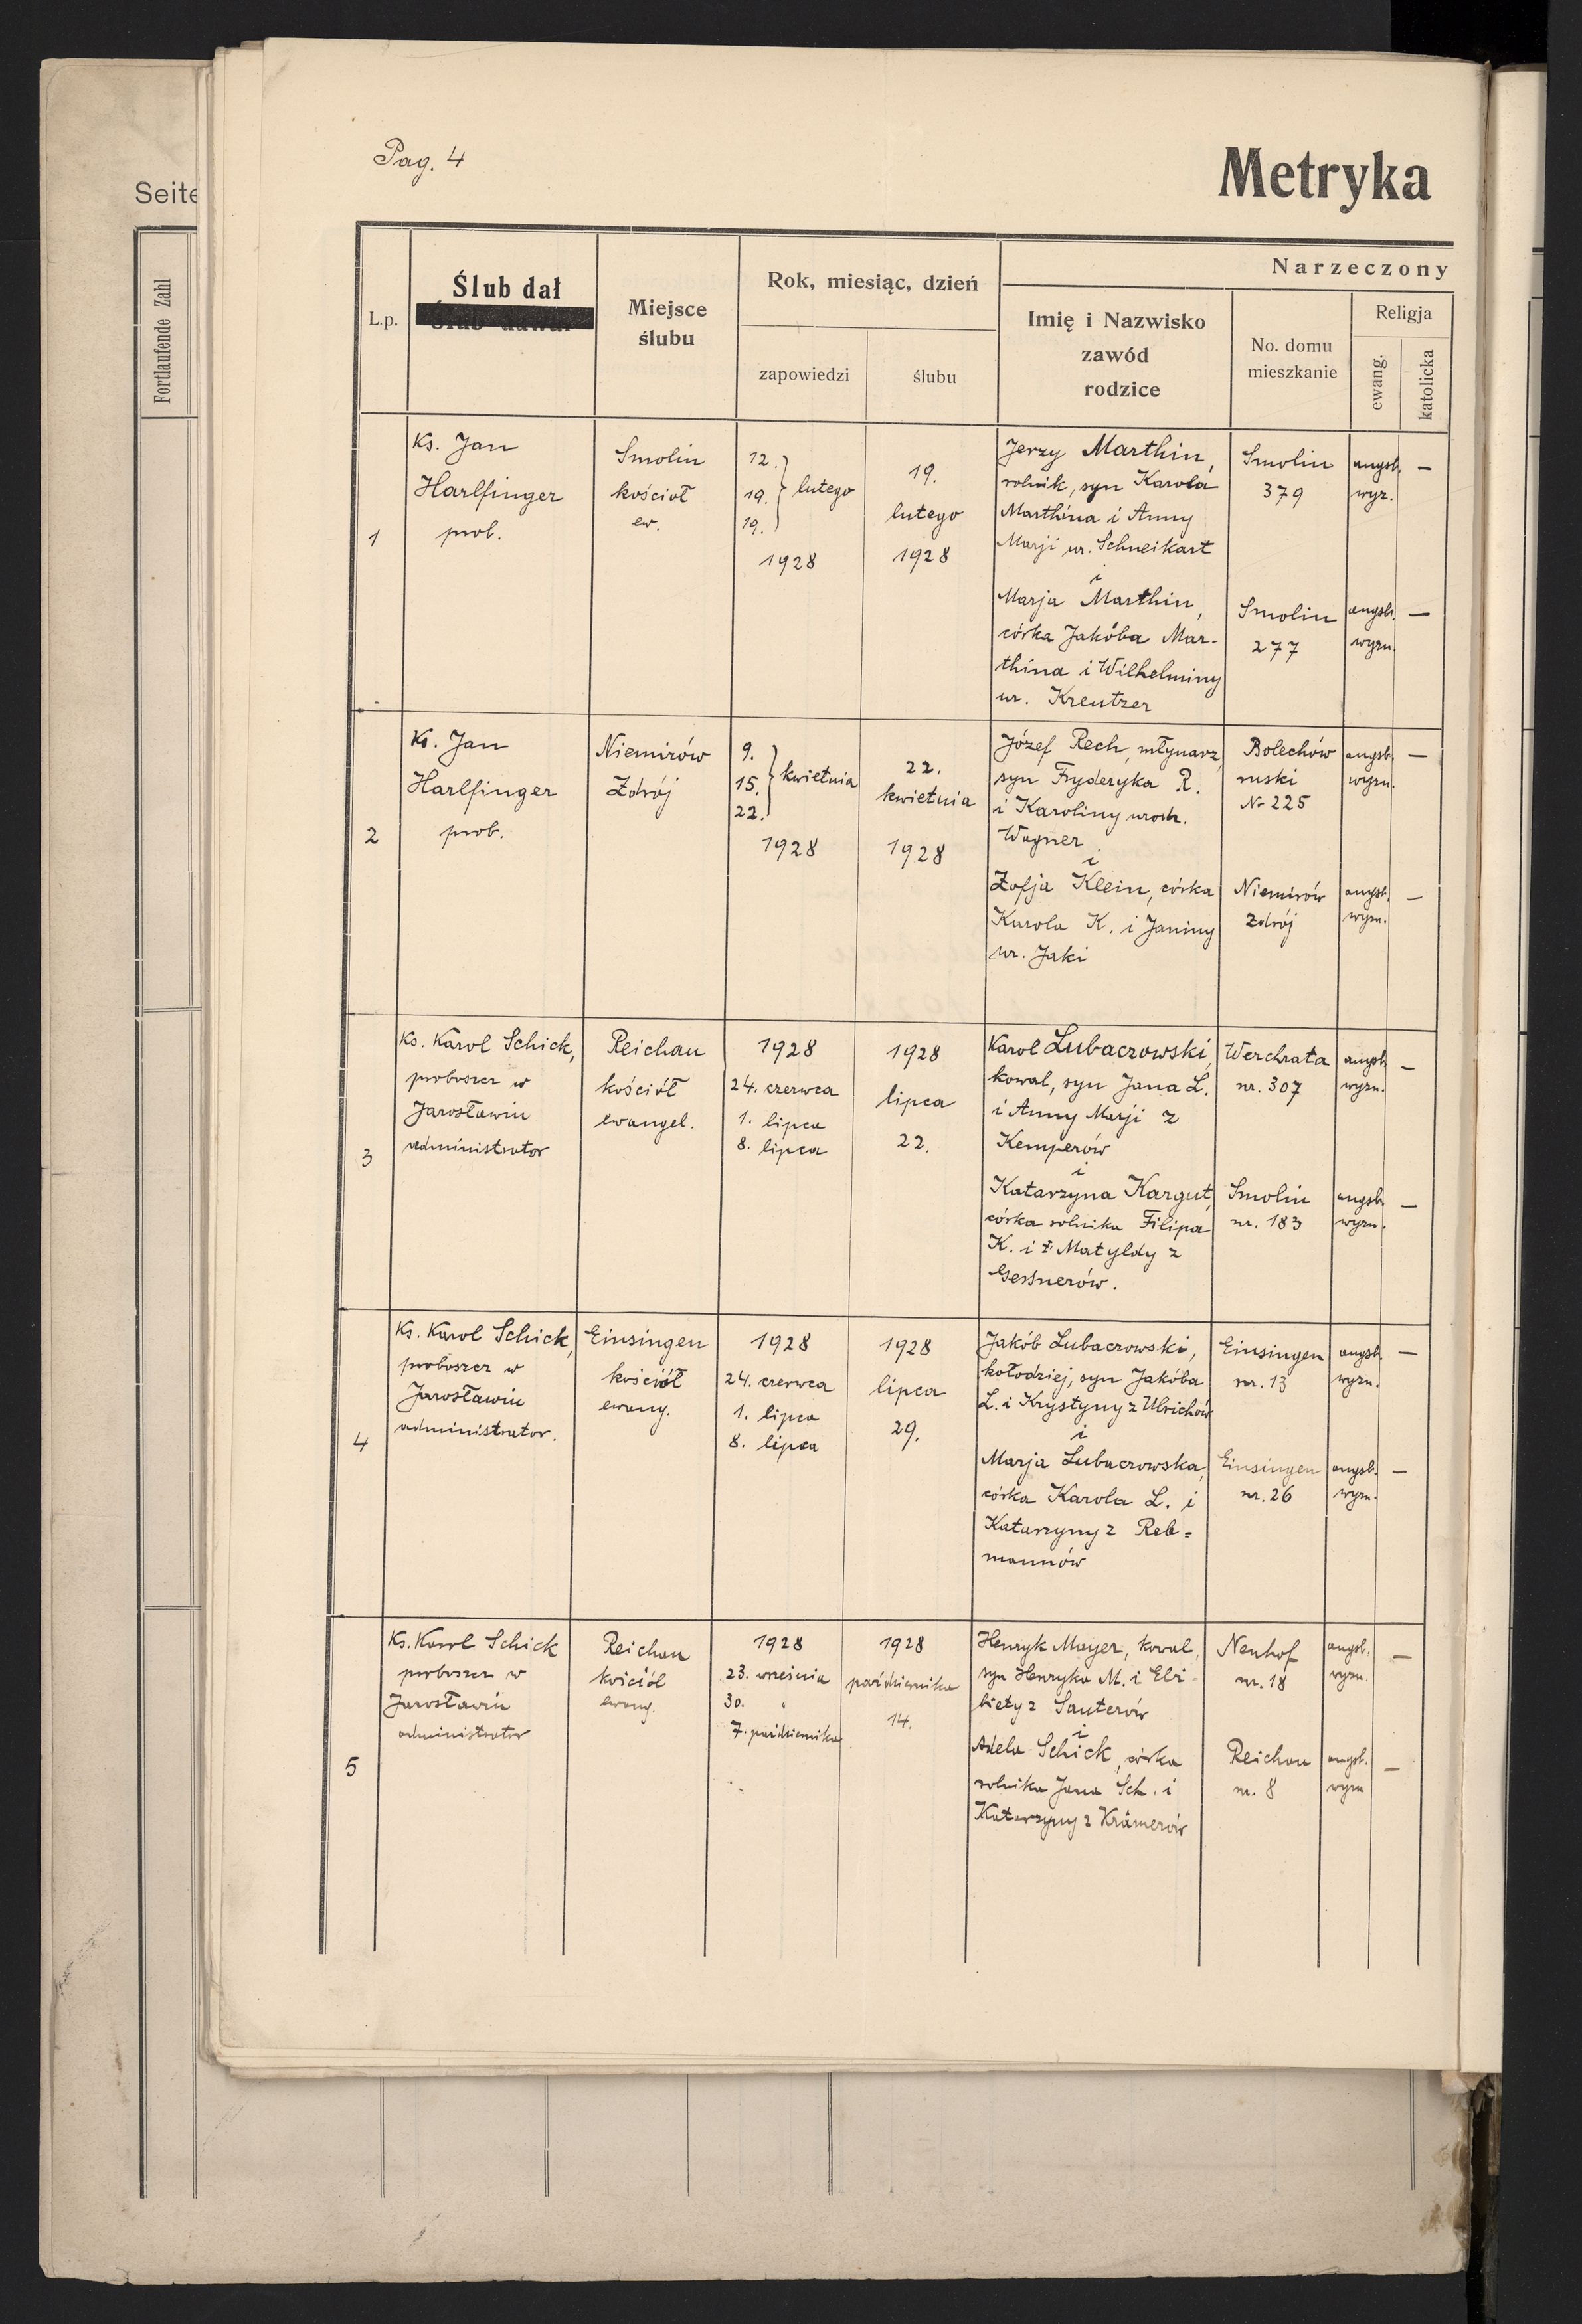 Seite
Fortlaufende Zahl
Pag. 4
Metryka
L.p.
Ślub dał
Miejsce
ślubu
Rok, miesiąc, dzień
zapowiedzi
ślubu
Narzeczony
Imię i Nazwisko
zawód
rodzice
No. domu
mieszkanie
Religja
ewang.
katolicka
1
Ks. Jan
Harlfinger
prob.
Smolin
kościoł
ew.
12.
19. lutego
19.
1928
19.
lutego
1928
Jerzy Marthin,
rolnik, syn Karola
Marthina i Anny
Marji ur. Schneikart
i
Marja Marthin,
córka Jakóba Mar-
thina i Wilhelminy
ur. Kreutzer
Smolin
379
augsb.
wyz.
—
Smolin
277
augsb.
wyzn.
—
2
Ks. Jan
Harlfinger
prob.
Niemirów
Zdrój
9.
15. kwietnia
22.
1928
22.
kwietnia
1928
Józef Rech, młynarz,
syn Fryderyka R.
i Karoliny urodz.
Wagner
i
Zofja Klein, córka
Karola K. i Janiny
ur. Jaki
Bolechów
ruski
Nr 225
augsb.
wyzn.
—
Niemirów
Zdrój
augsb.
wyzn.
—
3
Ks. Karol Schick,
proboszcz w
Jarosławiu
administrator
Reichau
kościół
ewangel.
1928
24. czerwca
1. lipca
8. lipca
1928
lipca
22.
Karol Lubaczowski,
kowal, syn Jana L.
i Anny Marji z
Kemperów
i
Katarzyna Kargut,
córka rolnika Filipa
K. i ż. Matyldy z
Gessnerów.
Werchrata
nr. 307
augsb.
wyzn.
—
Smolin
nr. 183
augsb.
wyzn.
—
4
Ks. Karol Schick,
proboszcz w
Jarosławiu
administrator.
Einsingen
kościół
ewang.
1928
24. czerwca
1. lipca
8. lipca
1928
lipca
29.
Jakób Lubaczowski,
kołodziej, syn Jakóba
L. i Krystyny z Ulrichów
i
Marja Lubaczowska,
córka Karola L. i
Katarzyny z Reb=
mannów
Einsingen
nr. 13
augsb.
wyzn.
—
Einsingen
nr. 26
augsb.
wyzn.
—
5
Ks. Karol Schick
proboszcz w
Jarosławiu
administrator
Reichau
kościół
ewang.
1928
23. września
30. "
7. października
1928
października
14.
Henryk Mayer, kowal,
syn Henryka M. i Elż-
biety z Sauterów
i
Adela Schick, córka
rolnika Jana Sch. i
Katarzyny z Krämerów
Neuhof
nr. 18
augsb.
wyzn.
—
Reichau
nr. 8
augsb.
wyzn
—